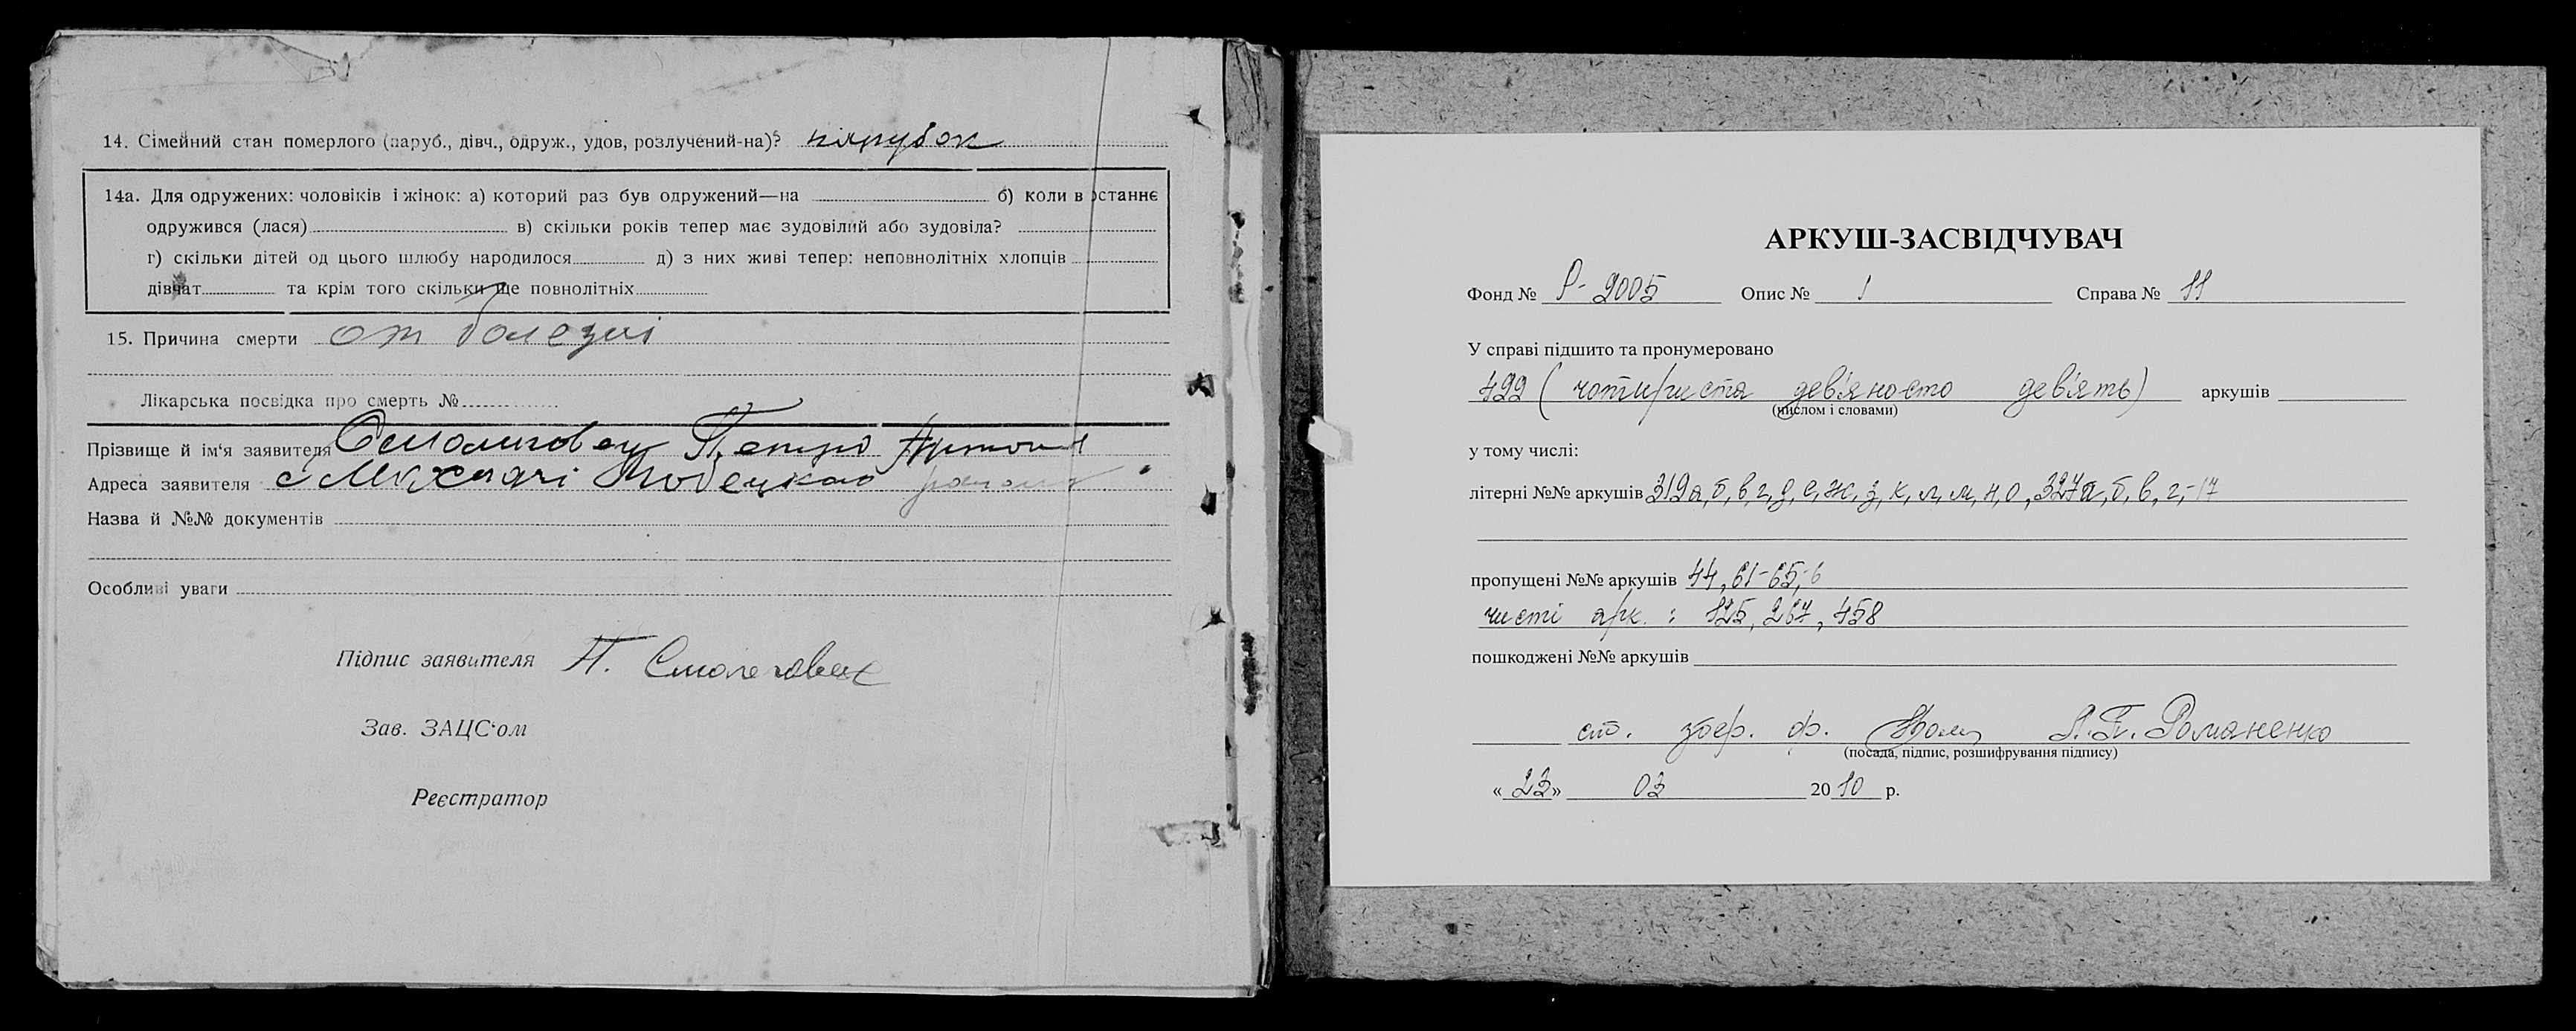 14. Сімейний стан померлого (паруб., дівч., одруж., удов, розлучений-на)? парубок
14а. Для одружених: чоловіків і жінок: а) который раз був одружений—на б) коли востаннє
одружився (лася) в) скільки років тепер має зудовілий або зудовіла?
г) скільки дітей од цього шлюбу народилося д) з них живі тепер: неповнолітніх хлопців
дівчат та крім того скільки ще повнолітніх
15. Причина смерти от болезні
Лікарська посвідка про смерть №
Прізвище й ім'я заявителя Петро
Адреса заявителя с
Назва й №№ документів
Особливі уваги
Підпис заявителя П.
Зав. ЗАЦС'ом
Реєстратор
АРКУШ-ЗАСВІДЧУВАЧ
Фонд № Р-9005 Опис № 1 Справа № 11
У справі підшито та пронумеровано
499 (чотириста дев'яносто дев'ять) аркушів
(числом і словами)
у тому числі:
літерні №№ аркушів 319а,б,в,г,д,е,ж,з,к,л,м,н,о,327а,б,в,г,-17
пропущені №№ аркушів 44, 61-65,-6
чисті арк. : 125, 267, 458
пошкоджені №№ аркушів
ст. збер. ф. Л.П. Романенко
(посада, підпис, розшифрування підпису)
«23» 03 2010 р.